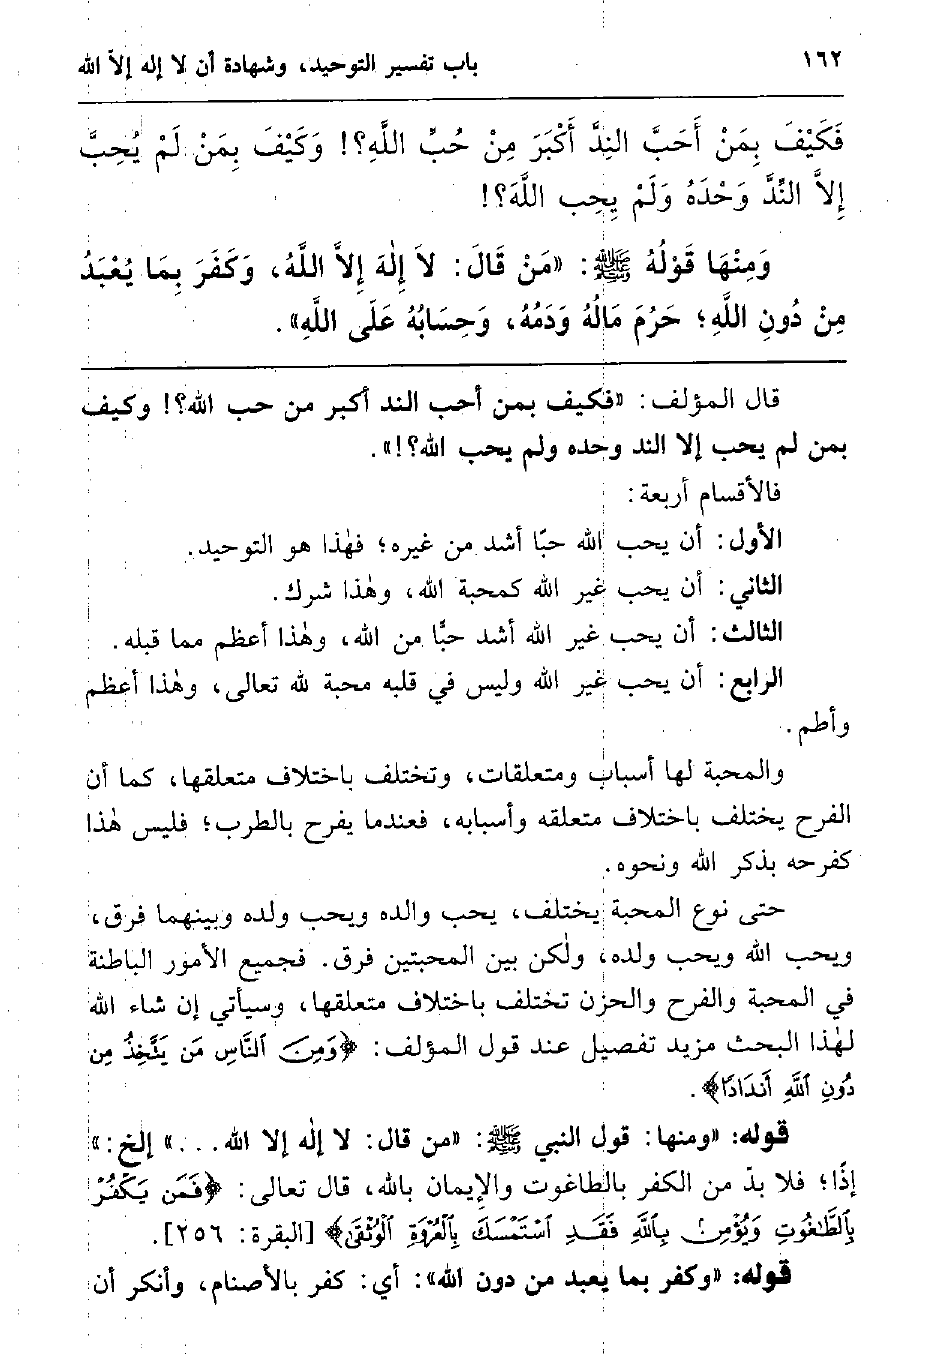 ١٦٢ باب تفسير التوحيد، وشهادة أن لا إله إلاّ الله
فَكَيْفَ بِمَنْ أَحَبَّ النِدَّ أَكْبَرَ مِنْ حُبِّ اللَّهِ؟! وَكَيْفَ بِمَنْ لَمْ يُحِبَّ
إِلاَّ النِّدَّ وَحْدَهُ وَلَمْ يحِب اللَّهَ؟!
وَمِنْهَا قَوْلُهُ ﷺ: «مَنْ قَالَ: لاَ إِلٰهَ إِلاَّ اللَّهُ، وَكَفَرَ بِمَا يُعْبَدُ
مِنْ دُونِ اللَّهِ؛ حَرُمَ مَالُهُ وَدَمُهُ، وَحِسَابُهُ عَلَى اللَّهِ».
قال المؤلف: «فكيف بمن أحب الند أكبر من حب الله؟! وكيف
بمن لم يحب إلا الند وحده ولم يحب الله؟!».
فالأقسام أربعة:
الأول: أن يحب الله حبًّا أشد من غيره؛ فهٰذا هو التوحيد.
الثاني: أن يحب غير الله كمحبة الله، وهٰذا شرك.
الثالث: أن يحب غير الله أشد حبًّا من الله، وهٰذا أعظم مما قبله.
الرابع: أن يحب غير الله وليس في قلبه محبة لله تعالى، وهٰذا أعظم
وأطم.
والمحبة لها أسباب ومتعلقات، وتختلف باختلاف متعلقها، كما أن
الفرح يختلف باختلاف متعلقه وأسبابه، فعندما يفرح بالطرب؛ فليس هٰذا
كفرحه بذكر الله ونحوه.
حتى نوع المحبة يختلف، يحب والده ويحب ولده وبينهما فرق،
ويحب الله ويحب ولده، ولٰكن بين المحبتين فرق. فجميع الأمور الباطنة
في المحبة والفرح والحزن تختلف باختلاف متعلقها، وسيأتي إن شاء الله
لهٰذا البحث مزيد تفصيل عند قول المؤلف: ﴿وَمِنَ ٱلنَّاسِ مَن يَتَّخِذُ مِن
دُونِ ٱللَّهِ أَندَادًا﴾.
قوله: «ومنها: قول النبي ﷺ: «من قال: لا إلٰه إلا الله...» إلخ:»
إذًا؛ فلا بدّ من الكفر بالطاغوت والإيمان بالله، قال تعالى: ﴿فَمَن يَكْفُرْ
بِٱلطَّٰغُوتِ وَيُؤْمِنۢ بِٱللَّهِ فَقَدِ ٱسْتَمْسَكَ بِٱلْعُرْوَةِ ٱلْوُثْقَىٰ﴾ [البقرة: ٢٥٦].
قوله: «وكفر بما يعبد من دون الله»: أي: كفر بالأصنام، وأنكر أن